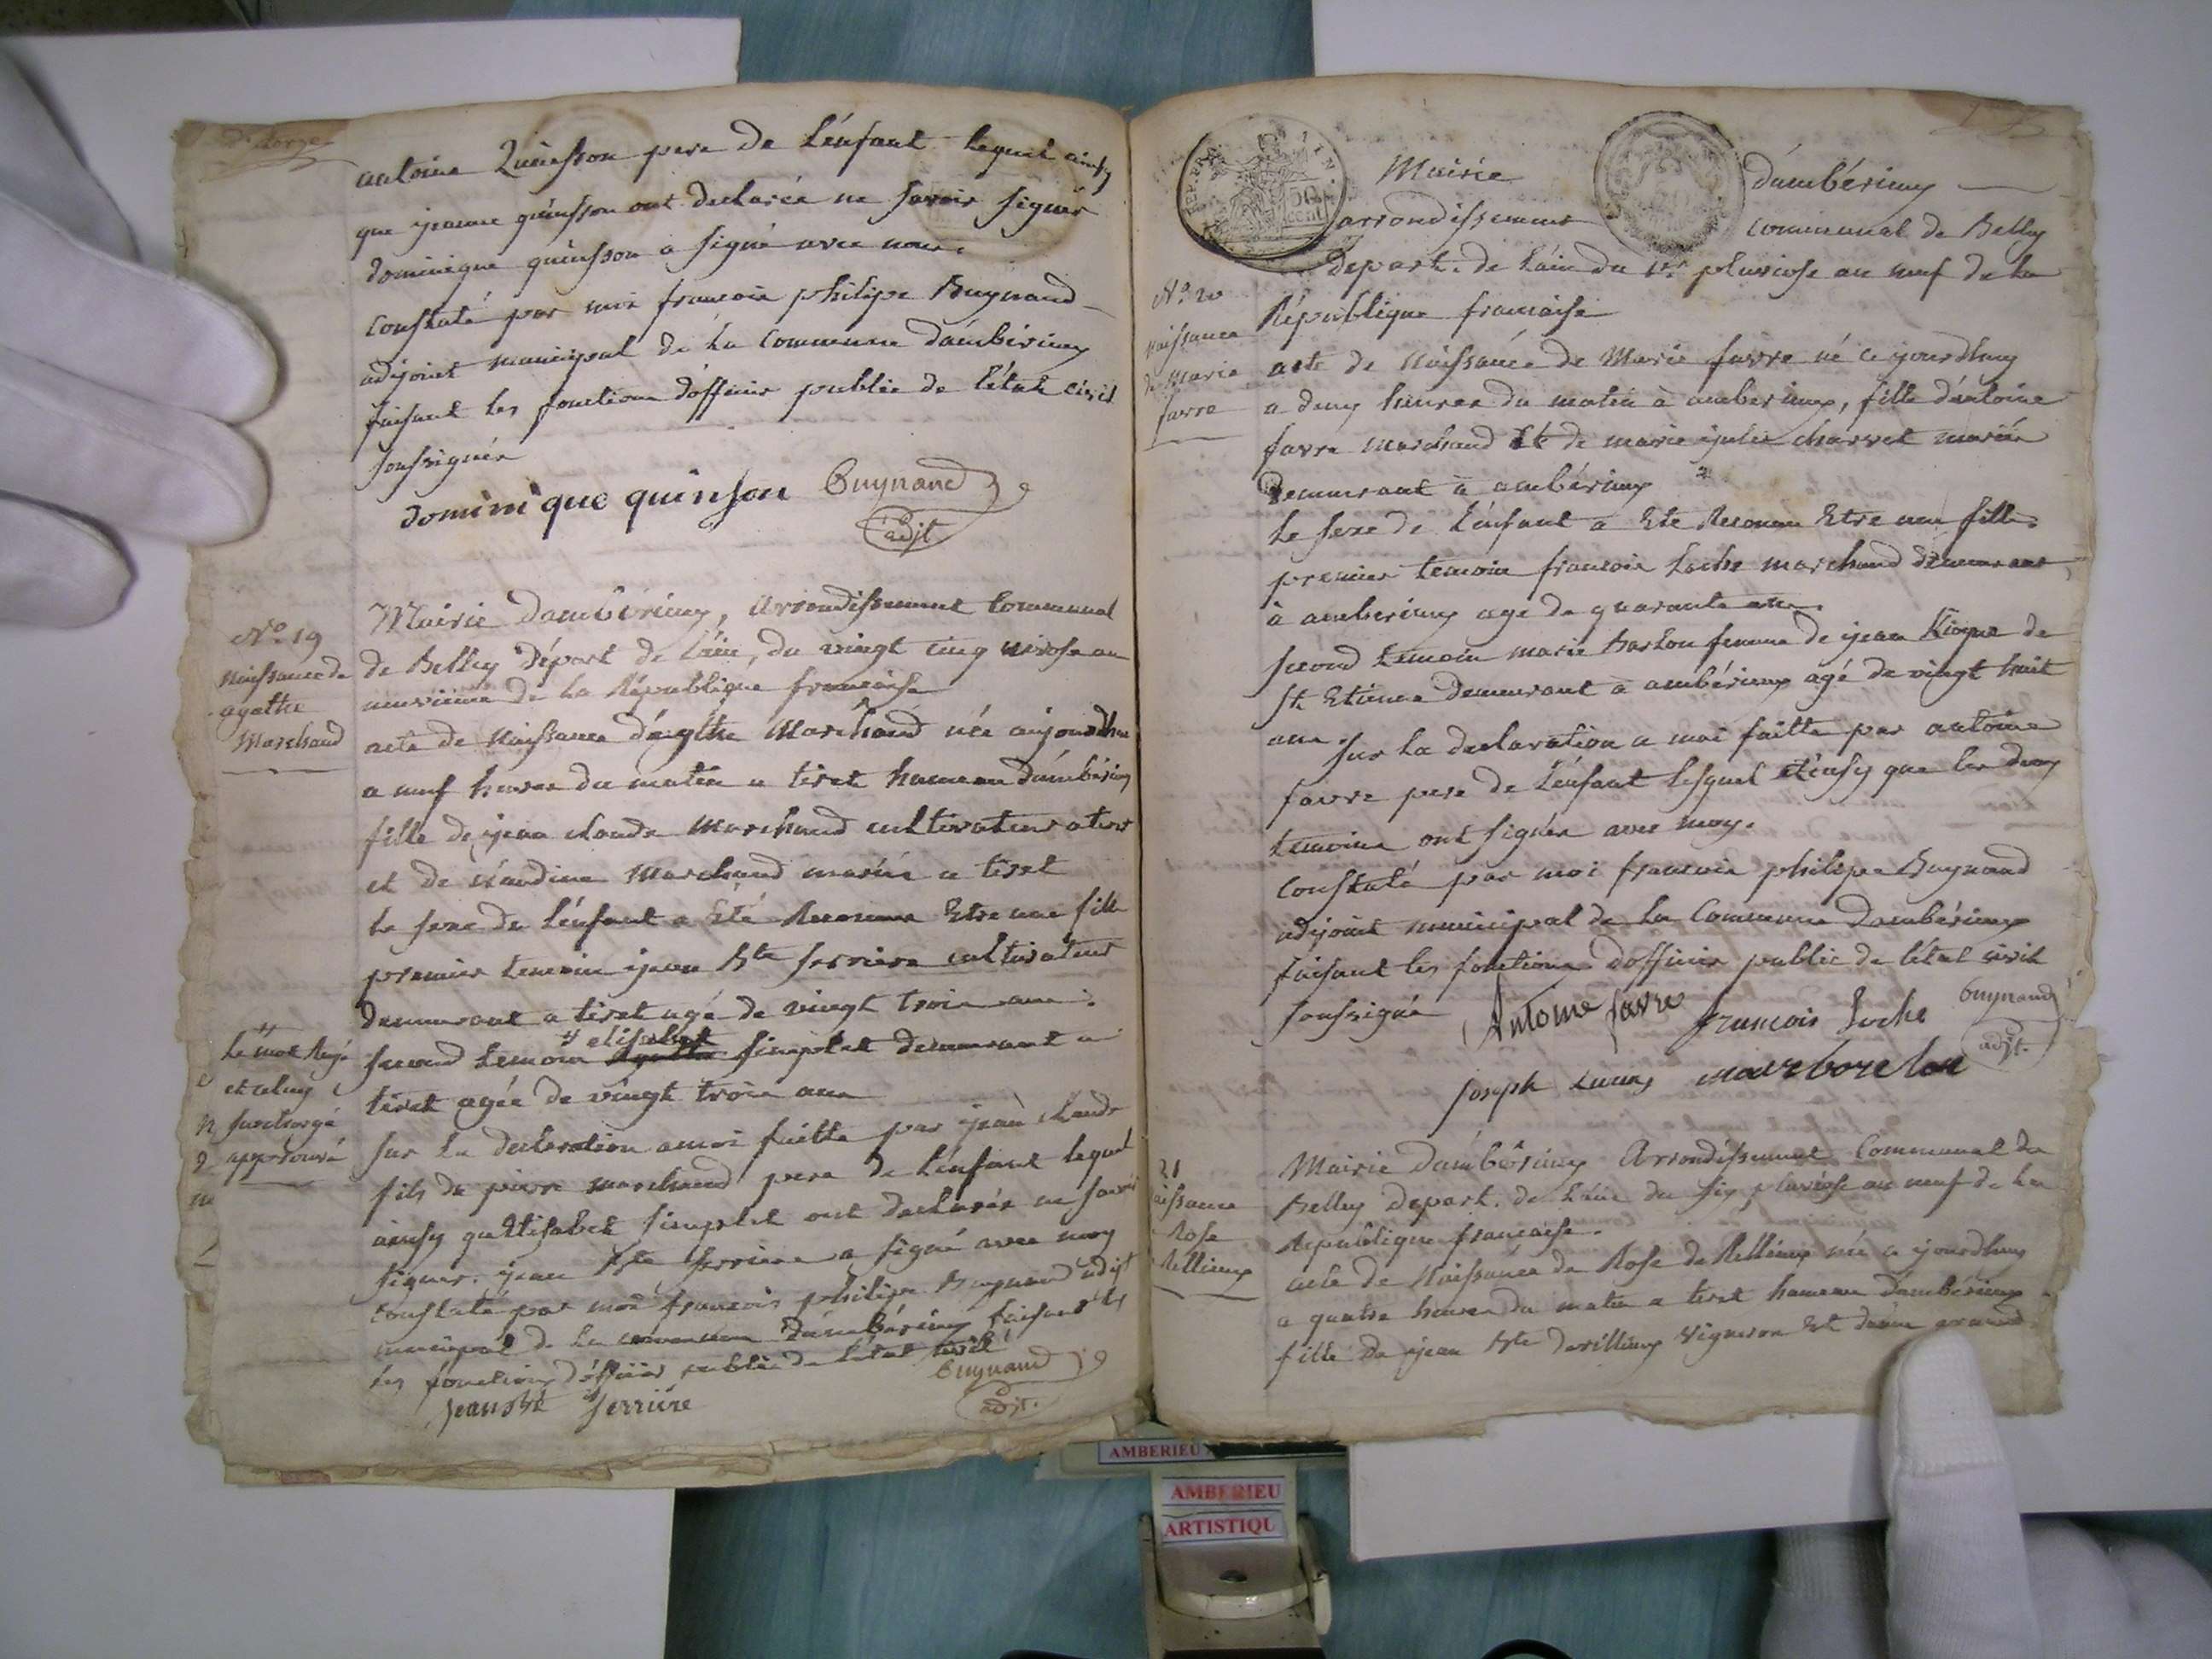 antoine Quinsson pere de L'enfant lequel ainsy
que jeanne quinsson ont declarée ne savoir signer
dominique quinsson a signé avec nous.
Constaté par moi francois philipe Buynand
adjoint municipal de la Commune d'ambérieux
faisant les fonctions d'officier public de l'état civil
soussignée
dominique quinson Buynand
adjt
N° 19
Naissance de
agathe
Marchand
Mairie d'ambérieux, Arrondissement Communal
de Belley Départ de L'ain, du vingt cinq nivose an
neuvieme de la République francaise
acte de Naissance d'agthe Marchand née aujourdhui
a neuf heures du matin a tiret hameau d'ambérieux
fille de jean claude Marchand cultivateur a tiret
et de claudine Marchand mariée a tiret
le sexe de L'enfant a Eté Reconnu Etre une fille
premier temoin jean Bte ferriere cultivateur
demeurant a tiret agé de vingt trois ans.
Second temoin elisabet simplet demeurant a
tiret agée de vingt trois ans
Le mot Rayé
et celuy
surchargé
approuvé
sur La declaration a moi faitte par jean claude
fils de pierre marchand pere de L'enfant lequel
ainsy qu'Elisabet simplet ont declarée ne savoir
signer. jean Bte ferriere a signé avec moy
Constaté par moi francois philipe Buynand adjt
municipal de La commune d'ambérieux faisant les
les fonctions d'officier public de L'état civil
Buynand
adjt.
jean Bte ferriére
REP. FRA.
50
cent
Mairie d'ambérieux
arrondissement communal de Belley
Depart. de L'ain du 1er pluviose an neuf de La
République francaise
N° 20
Naissance
de Marie
favre
acte de Naissance de Marie favre né ce jourdhuy
a deux heures du matin à amberieux, fille d'antoine
favre marchand Et de marie julie charvet mariée
Demeurant à ambérieux
Le sexe de L'enfant a Eté Reconnu Etre une fille.
premier temoin francois Loche marchand demeurant
à amberieux agé de quarante ans.
second temoin marie femme de jean de
St Etienne demeurant a ambérieux agé de vingt huit
ans. Sur La declaration a moi faitte par antoine
favre pere de L'enfant Lesquel et ainsy que les deux
temoins ont signés avec moy.
Constaté par moi francois philipe Buynand
adjoint municipal de La Commune d'ambérieux
faisant les fonctions d'officier public de L'état civil
soussigné
Antoine favre francois Loche Buynand
adjt.
joseph
21
aissance
Rose
Rillieux
Mairie d'ambérieux Arrondissement Communal de
Belley Depart. de L'ain du six pluviose an neuf de La
République francaise.
acte de Naissance de Rose de Rillieux née ce jourdhuy
a quatre heures du matin a tiret hameau d'ambérieux
fille de jean Bte derillieux Vigneron Et
AMBERIEU
AMBERIEU
ARTISTIQU